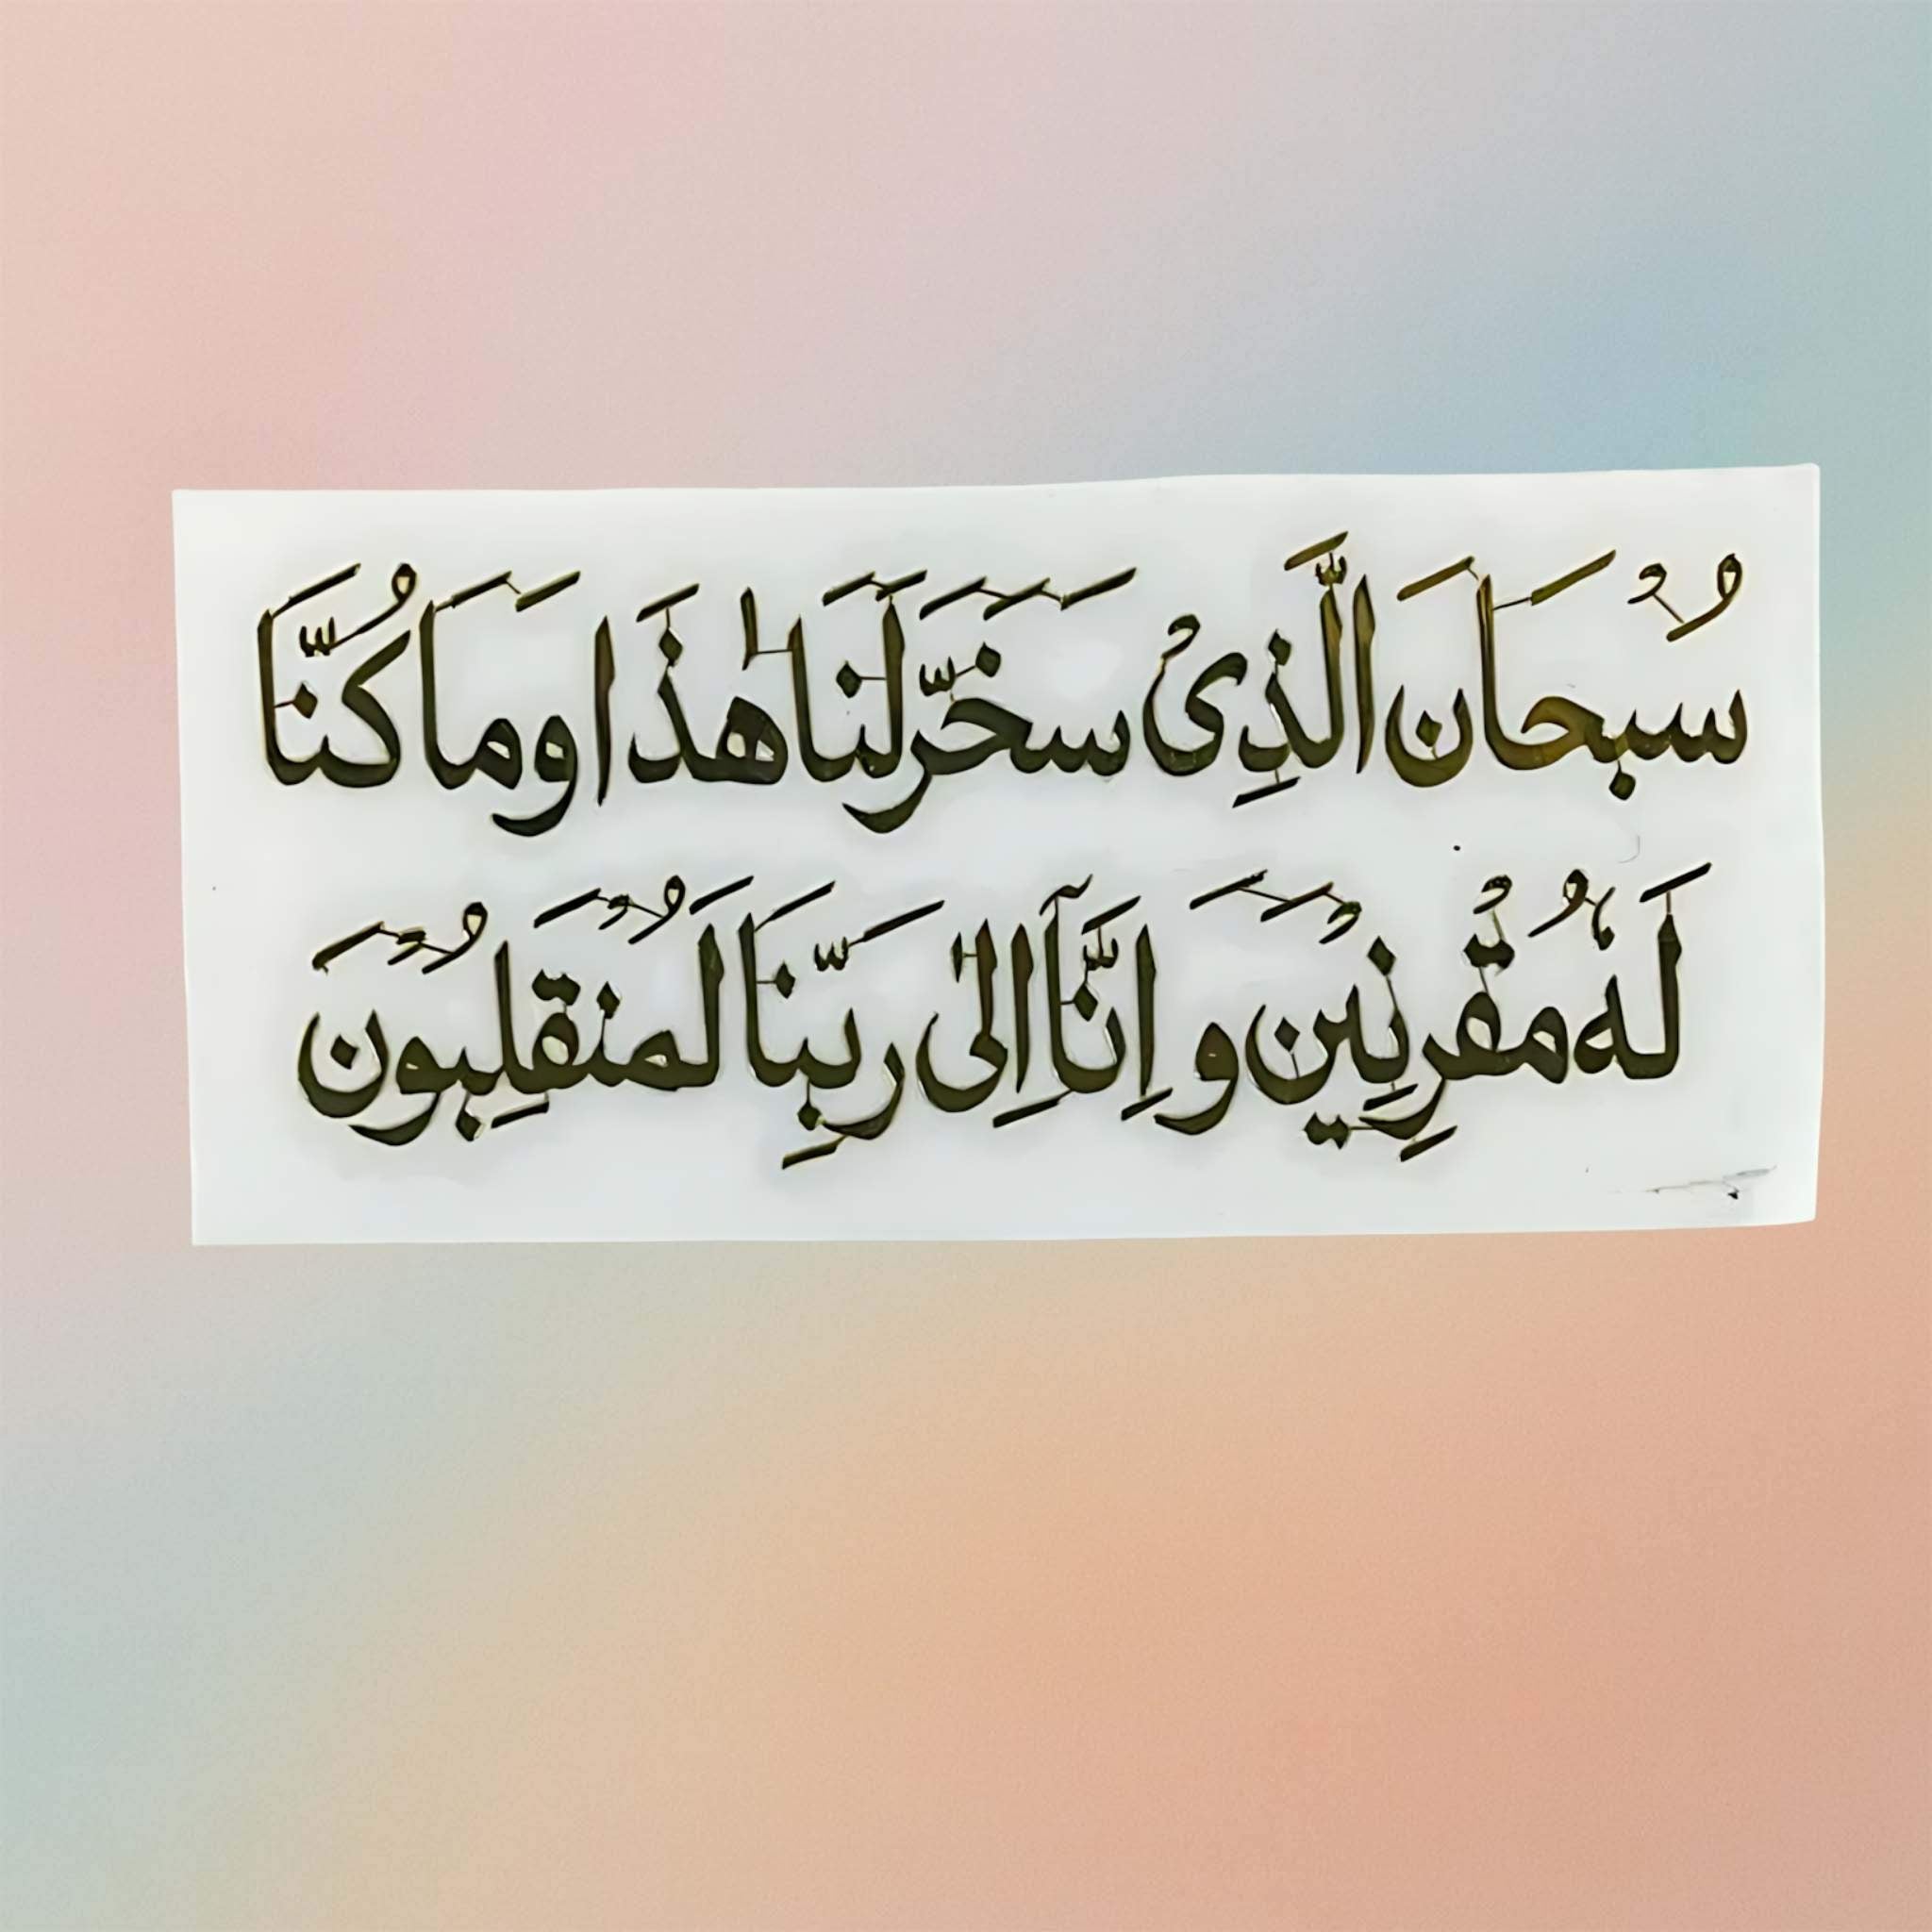 سُبْحَانَ الَّذِىْ سَخَّرَ لَنَا هٰذَا وَمَا كُنَّا
لَهٗ مُقْرِنِيْنَ وَ اِنَّآ اِلٰى رَبِّنَا لَمُنْقَلِبُوْنَ